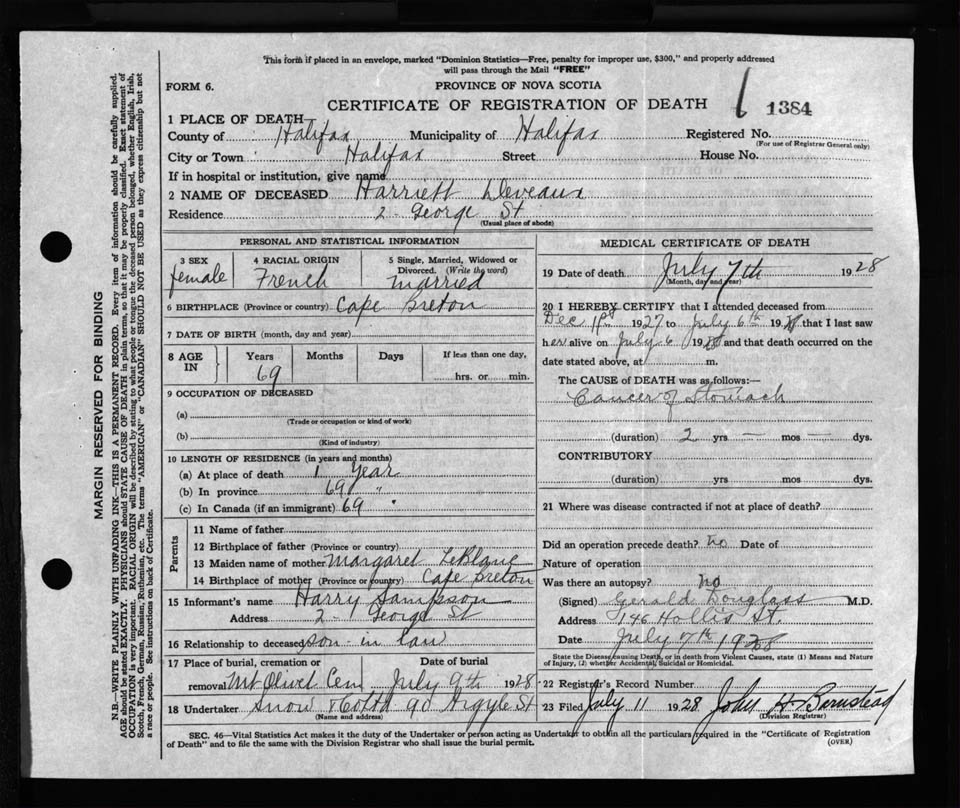 This form if placed in an envelope, marked "Dominion Statistics—Free, penalty for improper use, $300," and properly addressed
will pass through the Mail "FREE"
FORM 6.
PROVINCE OF NOVA SCOTIA
CERTIFICATE OF REGISTRATION OF DEATH
1384
1 PLACE OF DEATH—
County of Halifax Municipality of Halifax Registered No.
(For use of Registrar General only)
City or Town Halifax Street House No.
If in hospital or institution, give name
2 NAME OF DECEASED Harriett Deveaux
Residence 2 George St
(Usual place of abode)
PERSONAL AND STATISTICAL INFORMATION
3 SEX 4 RACIAL ORIGIN 5 Single, Married, Widowed or
Divorced. (Write the word)
female French married
6 BIRTHPLACE (Province or country) Cape Breton
7 DATE OF BIRTH (month, day and year)
8 AGE IN Years Months Days If less than one day,
69 hrs. or min.
9 OCCUPATION OF DECEASED
(a)
(Trade or occupation or kind of work)
(b)
(Kind of industry)
10 LENGTH OF RESIDENCE (in years and months)
(a) At place of death 1 Year
(b) In province 69 "
(c) In Canada (if an immigrant) 69 "
Parents
11 Name of father
12 Birthplace of father (Province or country)
13 Maiden name of mother Margaret LeBlanc
14 Birthplace of mother (Province or country) Cape Breton
15 Informant's name Harry Sampson
Address 2 George St
16 Relationship to deceased son-in law
17 Place of burial, cremation or Date of burial
removal Mt Olivet Cem July 9th 1928
18 Undertaker Snow & Co Ltd 90 Argyle St
(Name and address)
MEDICAL CERTIFICATE OF DEATH
19 Date of death July 7th 1928
(Month, day and year)
20 I HEREBY CERTIFY that I attended deceased from
Dec 1927 to July 6th 1928 that I last saw
her alive on July 6 1928 and that death occurred on the
date stated above, at m.
The CAUSE OF DEATH was as follows:—
Cancer of Stomach
(duration) 2 yrs — mos — dys.
CONTRIBUTORY
(duration) yrs mos dys.
21 Where was disease contracted if not at place of death?
Did an operation precede death? no Date of
Nature of operation
Was there an autopsy? no
(Signed) Gerald Douglass M.D.
Address 146 Hollis St.
Date July 7th 1928
State the Disease causing Death, or in death from Violent Causes, state (1) Means and Nature
of Injury, (2) whether Accidental, Suicidal or Homicidal.
22 Registrar's Record Number
23 Filed July 11 1928 John H Barnstead
(Division Registrar)
SEC. 46—Vital Statistics Act makes it the duty of the Undertaker or person acting as Undertaker to obtain all the particulars required in the "Certificate of Registration
of Death" and to file the same with the Division Registrar who shall issue the burial permit.
(OVER)
MARGIN RESERVED FOR BINDING
N.B.—WRITE PLAINLY WITH UNFADING INK—THIS IS A PERMANENT RECORD. Every item of information should be carefully supplied.
AGE should be stated EXACTLY. PHYSICIANS should STATE CAUSE OF DEATH in plain terms, so that it may be properly classified. Exact statement of
OCCUPATION is very important. RACIAL ORIGIN will be described by stating to what people or tongue the deceased person belonged, whether English, Irish,
Scotch, French, German, Russian, Ruthenian, etc. The terms "AMERICAN" or "CANADIAN" SHOULD NOT BE USED as they express citizenship but not
a race or people. See instructions on back of Certificate.